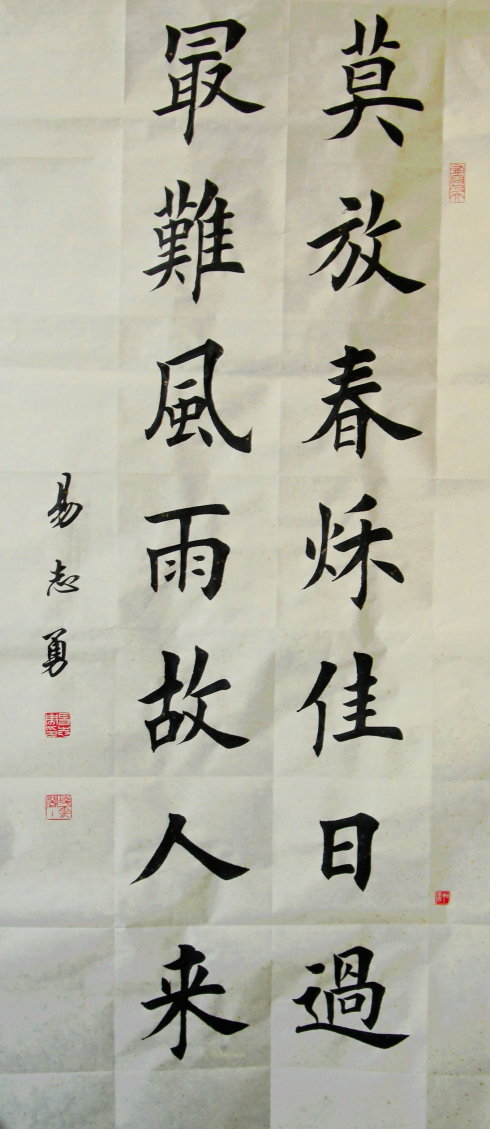 莫放春秌佳日過
最難風雨故人来
易志勇